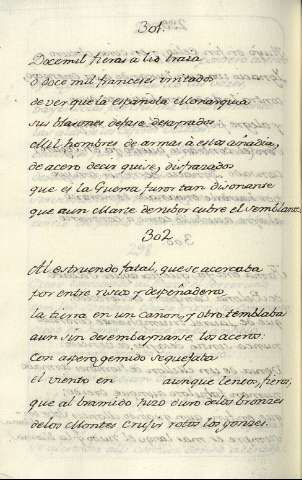 301.
Doce mil fieras a lid brava
ó doce mil franceses irritados
de ver que la española Monarquia
sus blasones dejase desayrados
Mil hombres de armas á estas añadia,
de acero decir quise, disfrazados
que es la Guerra furor tan disonante
que aun Marte de rubor cubre el semblante.
302
Al estruendo fatal, que se acercaba
por entre risco y despeñadero,
la tierra en un cañon, y otro temblaba
aun sin desembaynarse los aceros.
Con aspero gemido se quejaba
el viento en aunque lentos, fieros,
que al bramido, hizo duro de los bronzes
de los Montes crugir rotos los gonzes.